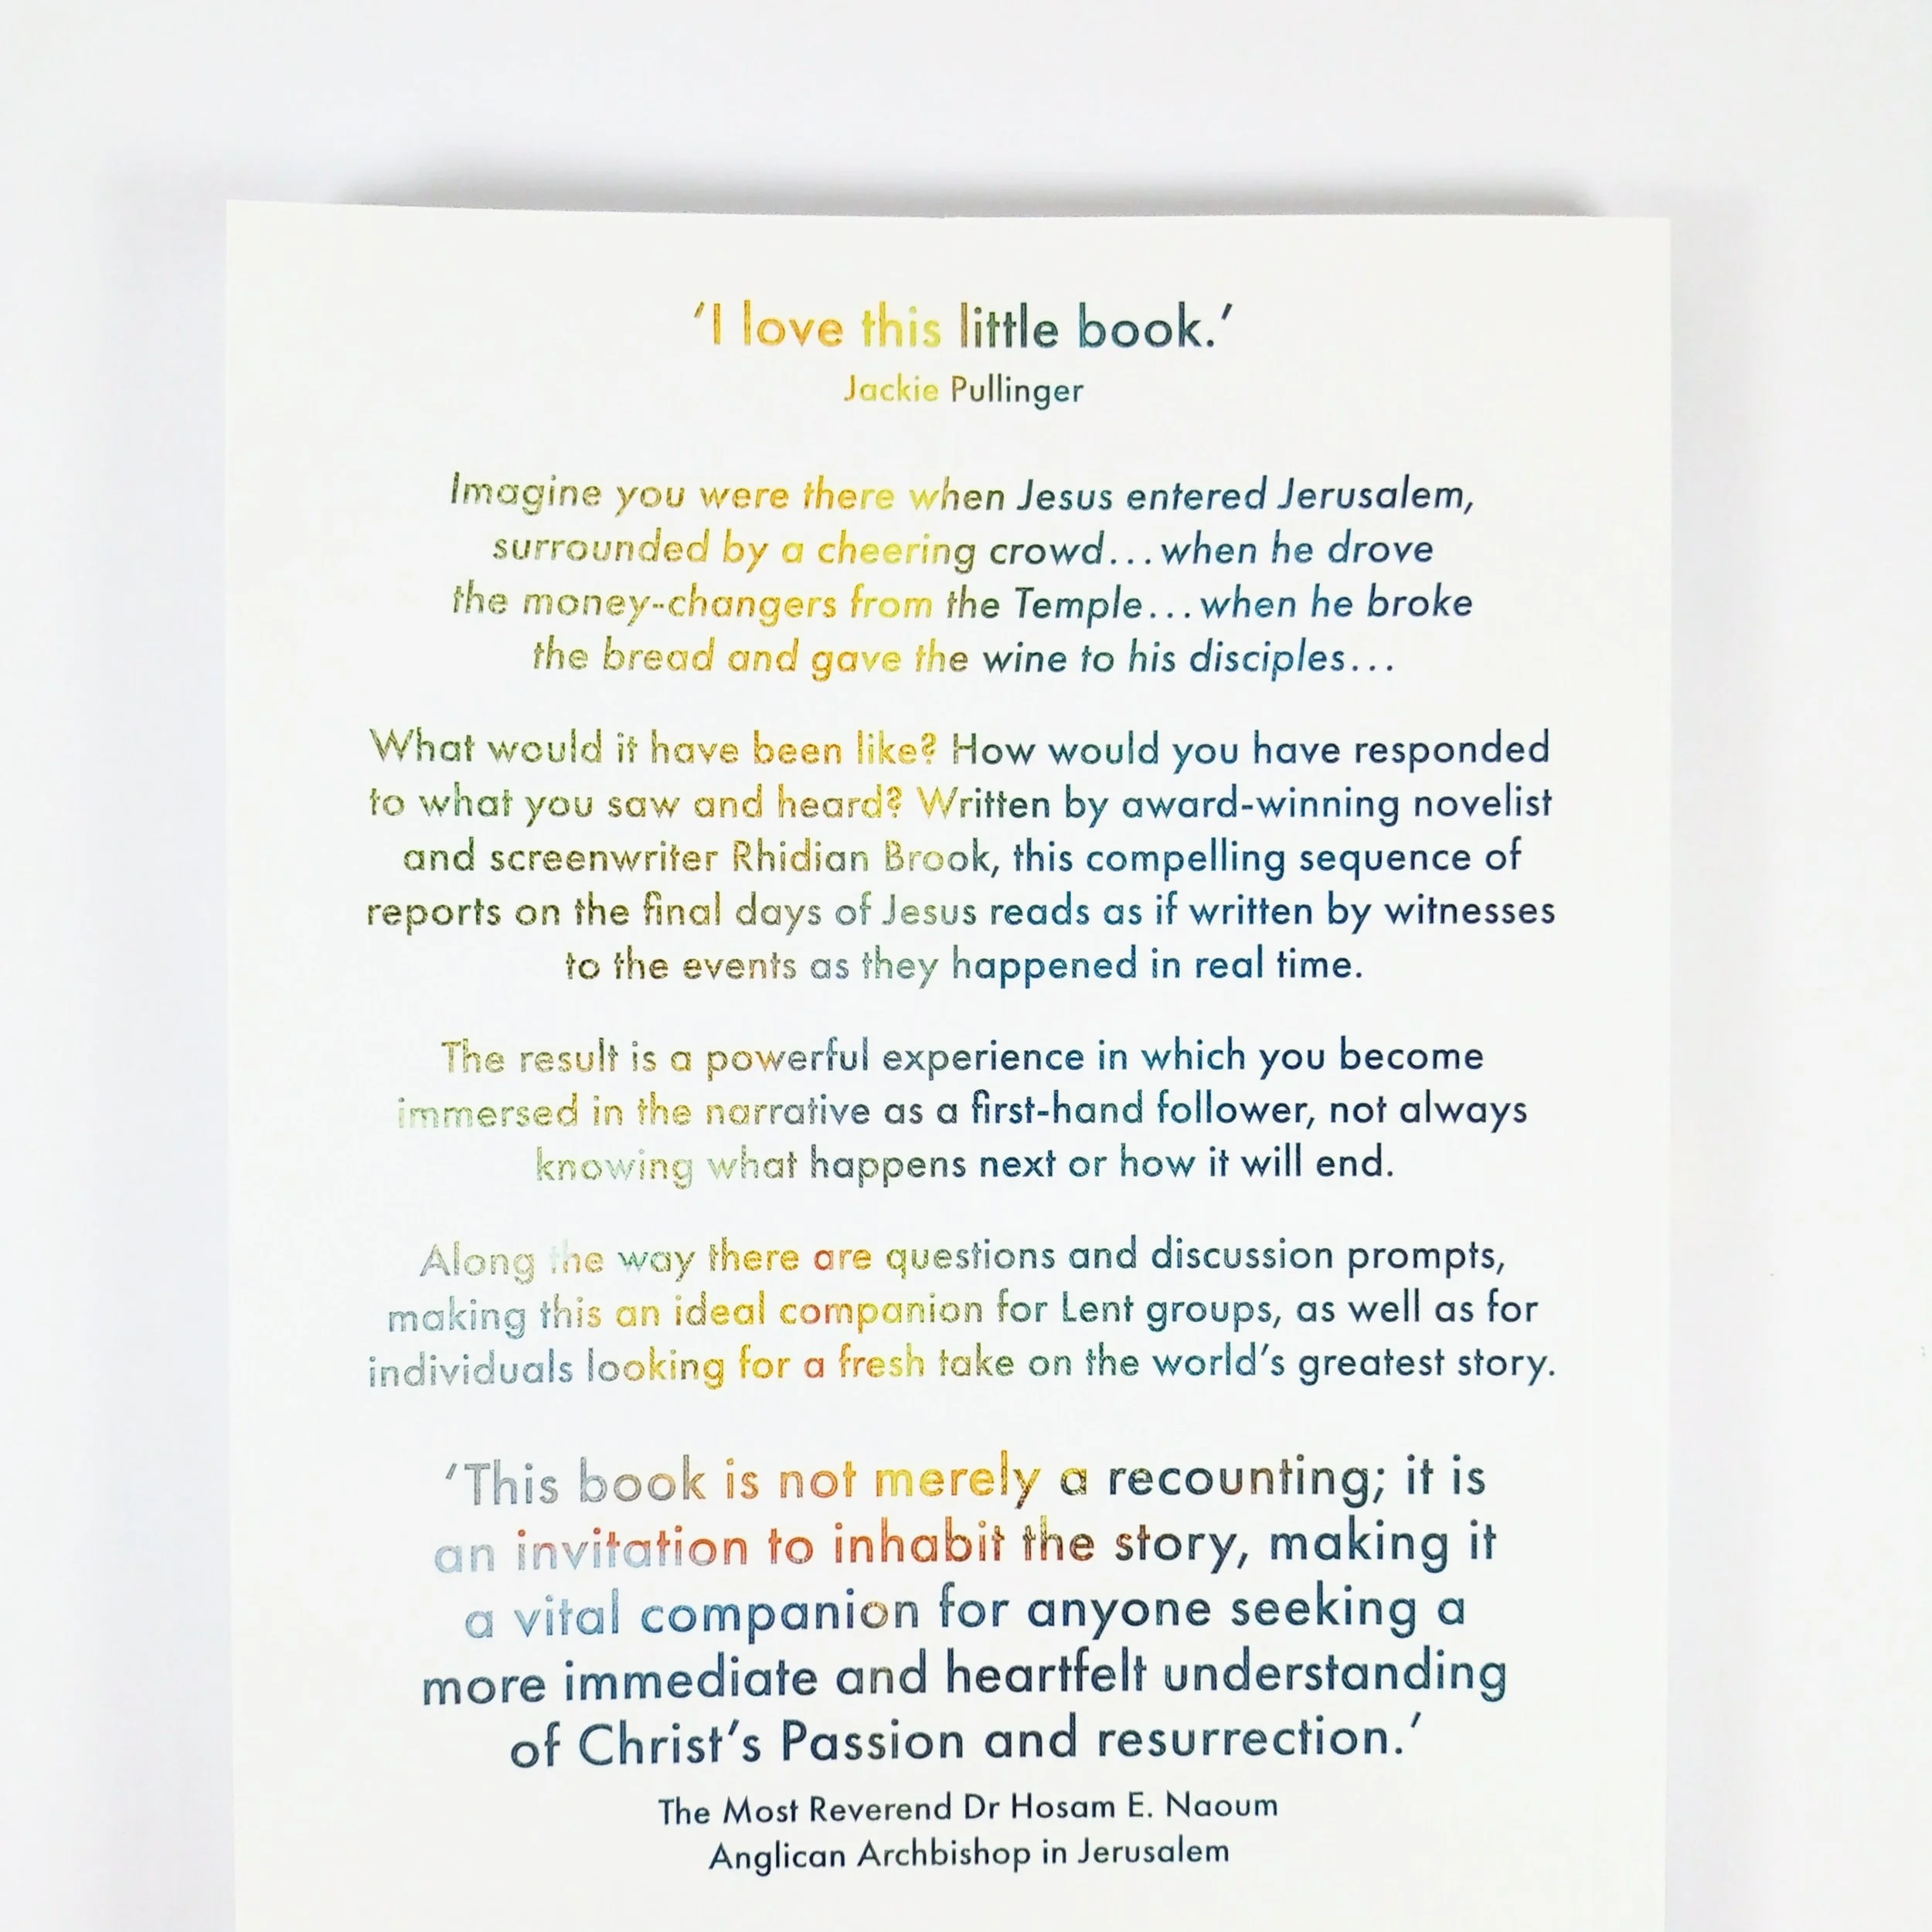 ‘I love this little book.’
Jackie Pullinger
Imagine you were there when Jesus entered Jerusalem,
surrounded by a cheering crowd...when he drove
the money-changers from the Temple...when he broke
the bread and gave the wine to his disciples...
What would it have been like? How would you have responded
to what you saw and heard? Written by award-winning novelist
and screenwriter Rhidian Brook, this compelling sequence of
reports on the final days of Jesus reads as if written by witnesses
to the events as they happened in real time.
The result is a powerful experience in which you become
immersed in the narrative as a first-hand follower, not always
knowing what happens next or how it will end.
Along the way there are questions and discussion prompts,
making this an ideal companion for Lent groups, as well as for
individuals looking for a fresh take on the world’s greatest story.
‘This book is not merely a recounting; it is
an invitation to inhabit the story, making it
a vital companion for anyone seeking a
more immediate and heartfelt understanding
of Christ’s Passion and resurrection.’
The Most Reverend Dr Hosam E. Naoum
Anglican Archbishop in Jerusalem